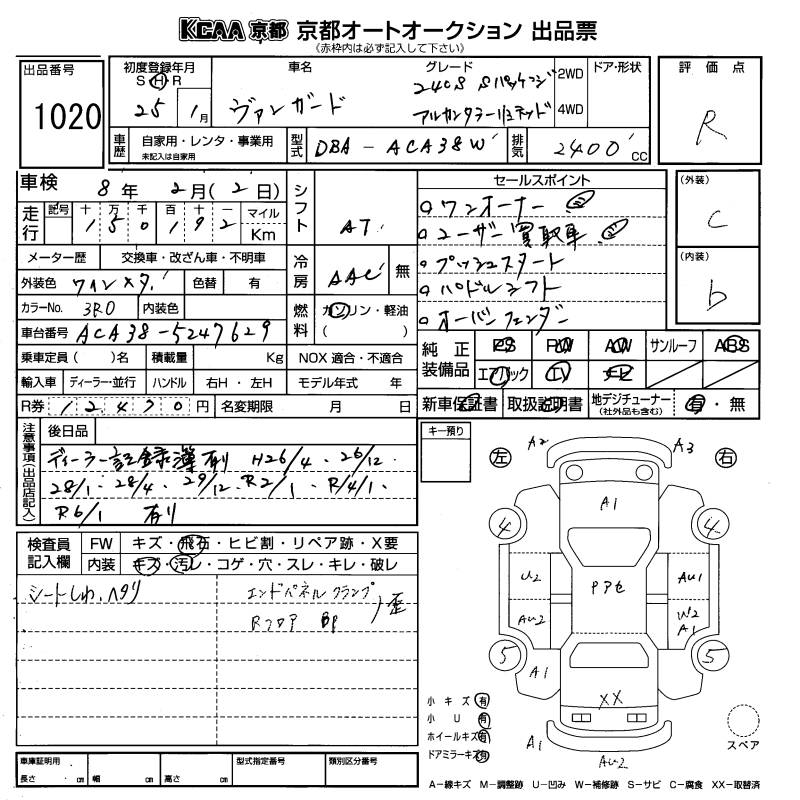 KCAA 京都 京都オートオークション 出品票
(赤枠内は必ず記入して下さい)
出品番号
1020
初度登録年月
S H R
25 1月
車名
ヴァンガード
グレード
240S Sパッケージ
アルカンターラリミテッド
2WD
4WD
ドア・形状
評価点
R
車歴
自家用・レンタ・事業用
未記入は自家用
型式
DBA-ACA38W
排気
2400cc
車検
8年 2月(2日)
走行
記号 十 万 千 百 十 一 マイル Km
1 5 0 1 9 2
シフト
AT
メーター歴
交換車・改ざん車・不明車
冷房
AAC
無
外装色
ワインメタ
色替
有
カラーNo.
3R0
内装色
燃料
ガソリン・軽油
( )
車台番号
ACA38-5247629
乗車定員( )名
積載量
Kg
NOX 適合・不適合
輸入車
ディーラー・並行
ハンドル
右H・左H
モデル年式 年
R券
12,470円
名変期限 月 日
セールスポイント
ワンオーナー
ユーザー買取車
プッシュスタート
パドルシフト
オーバーフェンダー
(外装)
C
(内装)
b
純正装備品
PS PW AW サンルーフ ABS
エアバック
新車保証書 取扱説明書
地デジチューナー
(社外品も含む)
有・無
注意事項(出品店記入)
後日品
ディーラー記録簿有 H26/4. 26/12.
28/1. 28/4. 29/12. R2/1. R/4/1.
R6/1 有り
キー預り
検査員記入欄
FW キズ・飛石・ヒビ割・リペア跡・X要
内装 キズ・汚レ・コゲ・穴・スレ・キレ・破レ
シートしわ、ヘタリ
エンドパネル クランプ
Rフロア BP
歪
左
右
A2
A3
A1
4
4
U2
AU2
Pアセ
AU1
W2
A1
5
5
A1
XX
A1
AU2
小キズ 有
小U 有
ホイールキズ 有
ドアミラーキズ 有
スペア
車庫証明用
長さ ・ cm 幅 cm 高さ cm
型式指定番号
類別区分番号
A-線キズ M-調整跡 U-凹み W-補修跡 S-サビ C-腐食 XX-取替済